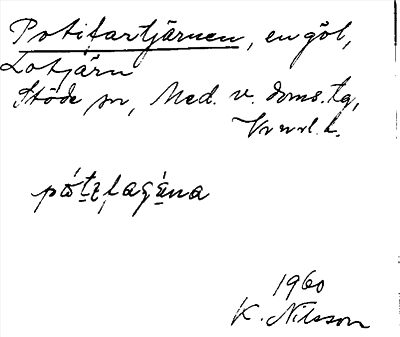 Potifartjärnen, en göl,
Lotjärn
Stöde sn, Med. v. doms. tg,
Vnorrl. l.
pótɩfagána
1960
K. Nilsson